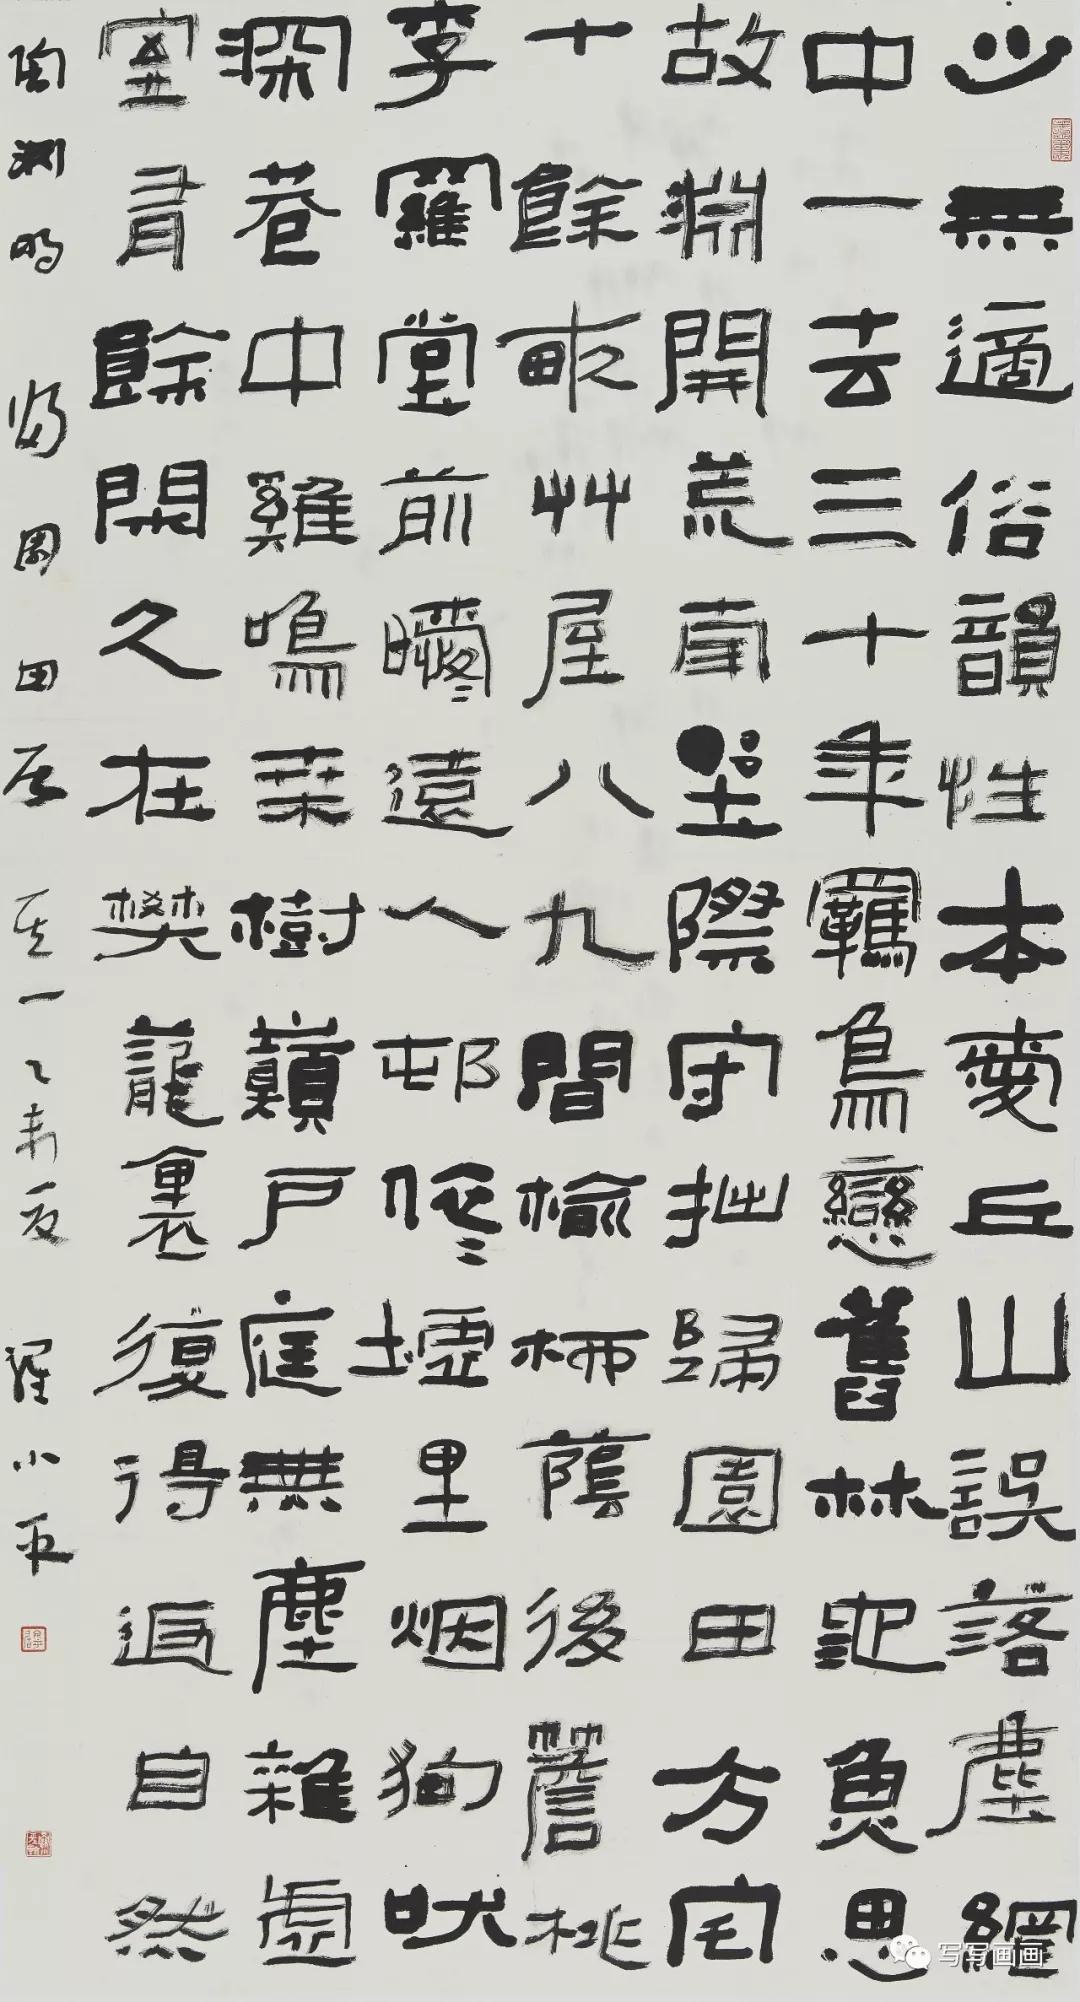 少無適俗韻性本愛丘山誤落塵網
中一去三十年羈鳥戀舊林池魚思
故淵開荒南埜際守拙歸園田方宅
十餘畝艸屋八九間榆柳蔭後簷桃
李羅堂前曖〻遠人邨依〻墟里烟狗吠
深巷中雞鳴桒樹巔戶庭無塵雜虛
室有餘閑久在樊籠裏復得返自然
陶渊明 归園田居 其一 乙未夏 羅小平
写写画画